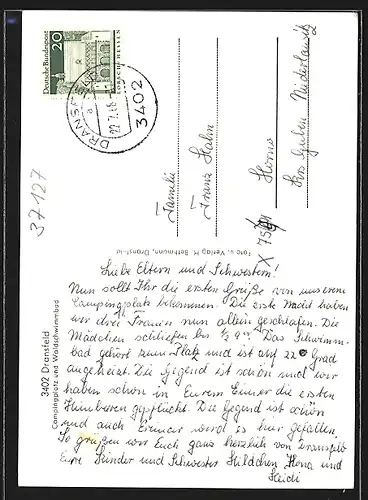 Deutsche Bundespost
20
LORSCH/HESSEN
DRANSFELD
a
22.7.68
3402
37127
Familie
Franz Hahn
X 7561
Horno
Krs Guben Niederlausitz
Foto u. Verlag H. Bethmann, Dransfeld
3402 Dransfeld
Campingplatz und Waldschwimmbad
Liebe Eltern und Schwestern!
Nun sollt Ihr die ersten Grüße von unserem
Campingplatz bekommen. Die erste Nacht haben
wir drei Frauen nun allein geschlafen. Die
Mädchen schliefen bis ½ 9 Uhr. Das Schwimm-
bad gehört zum Platz und ist auf 22 Grad
angeheizt. Die Gegend ist schön und wir
haben schon in Eurem Eimer die ersten
Himbeeren gepflückt. Die Gegend ist schön
und auch wird es hier gefallen.
So grüßen wir Euch ganz herzlich von Dransfeld
Eure Kinder und Schwester Hildchen, Ilona und
Heidi